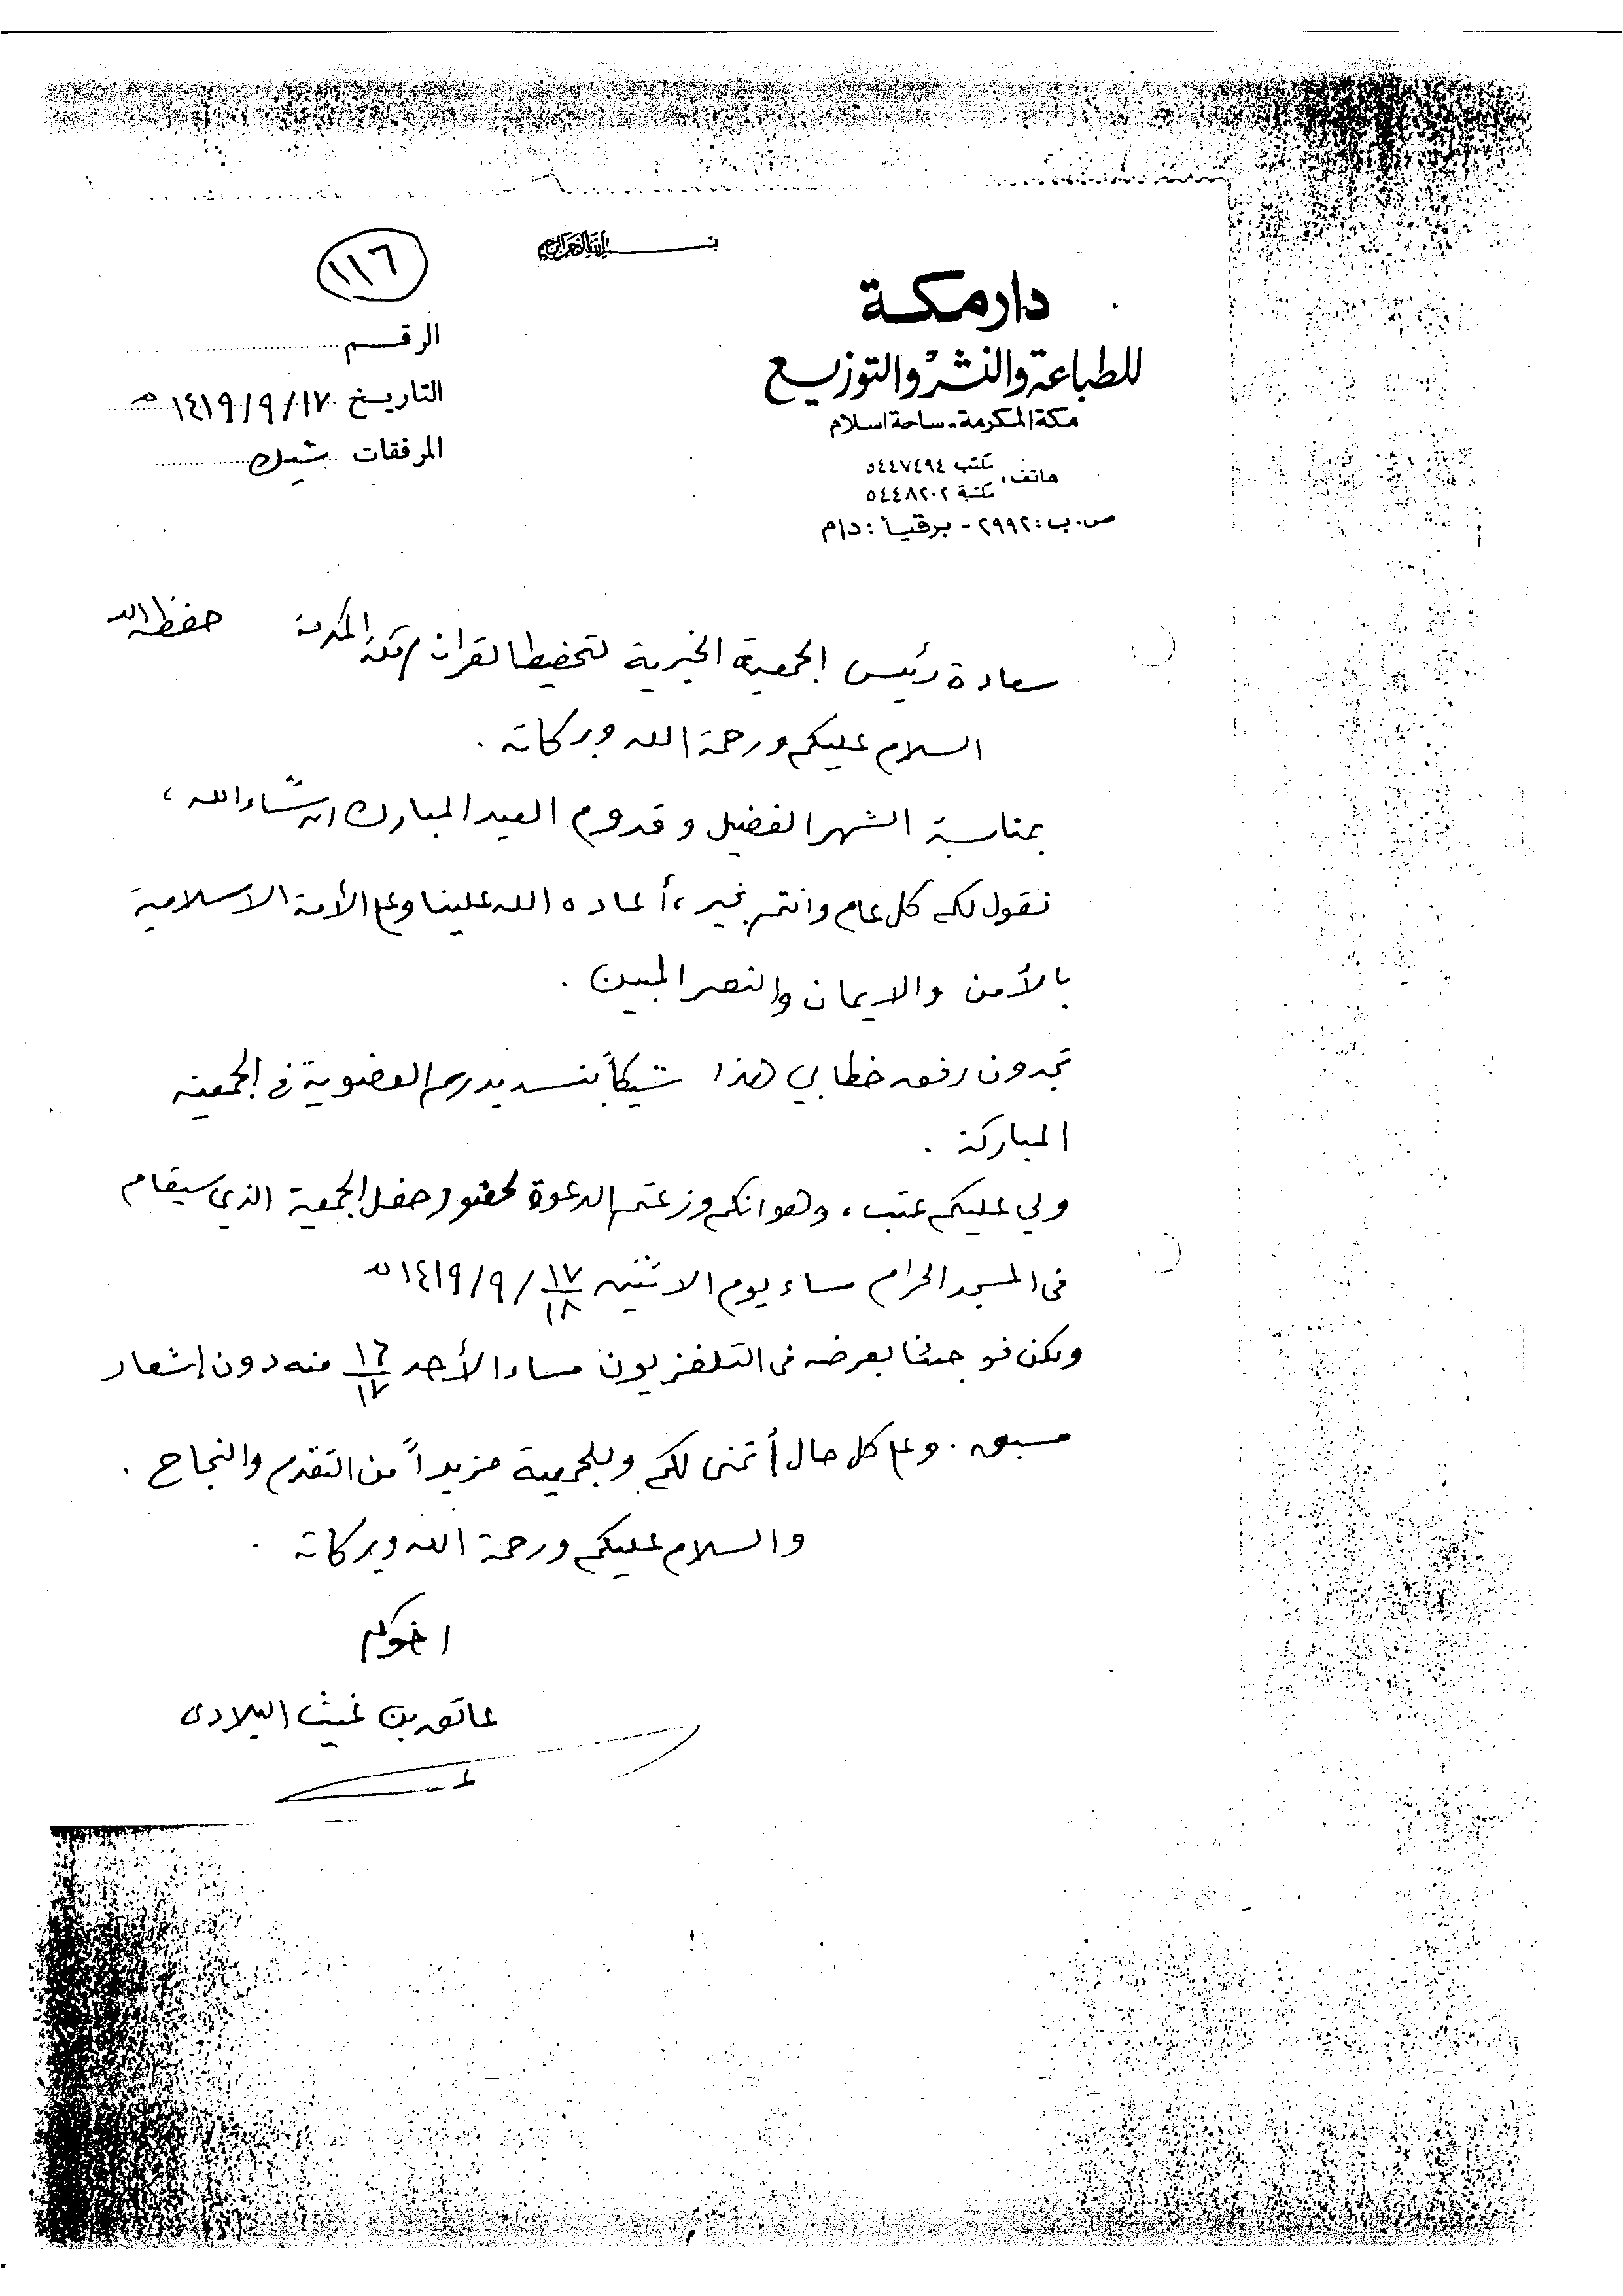 بسم الله الرحمن الرحيم
١١٦
دار مكة
للطباعة والنشر والتوزيع
مكة المكرمة - ساحة اسلام
هاتف : مكتب ٥٤٤٧٤٩٤
مكتبة ٥٤٤٨٢٠٢
ص.ب : ٢٩٩٢ - برقياً : دام
الرقم
التاريخ ١٤١٩/٩/١٧ هـ
المرفقات شيك
سعادة رئيس الجمعية الخيرية لتحفيظ القرآن بمكة المكرمة حفظه الله
السلام عليكم ورحمة الله وبركاته .
بمناسبة الشهر الفضيل وقدوم العيد المبارك ان شاء الله ،
نقول لكم كل عام وانتم بخير ، أعاده الله علينا وعلى الأمة الاسلامية
بالأمن والايمان والنصر المبين .
تجدون رفق خطابي هذا شيكاً بتسديد رسم العضوية في الجمعية
المباركة .
ولي عليكم عتب ، وهو انكم وزعتم الدعوة لحضور حفل الجمعية الذي سيقام
في المسجد الحرام مساء يوم الاثنين ١٧/١٨ /١٤١٩/٩ هـ
ولكن فوجئنا بعرضه في التلفزيون مساء الأحد ١٦/١٧ منه دون إشعار
مسبق . وعلى كل حال أتمنى لكم وللجمعية مزيداً من التقدم والنجاح .
والسلام عليكم ورحمة الله وبركاته .
اخوكم
عاتق بن غيث البلادي